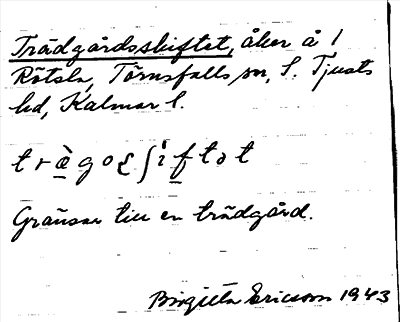 Trädgårdsskiftet, åker å 1
Rötsla, Törnsfalls sn, S. Tjusts
hd, Kalmar l.
Gränsar till en trädgård.
Birgitta Ericson 1943